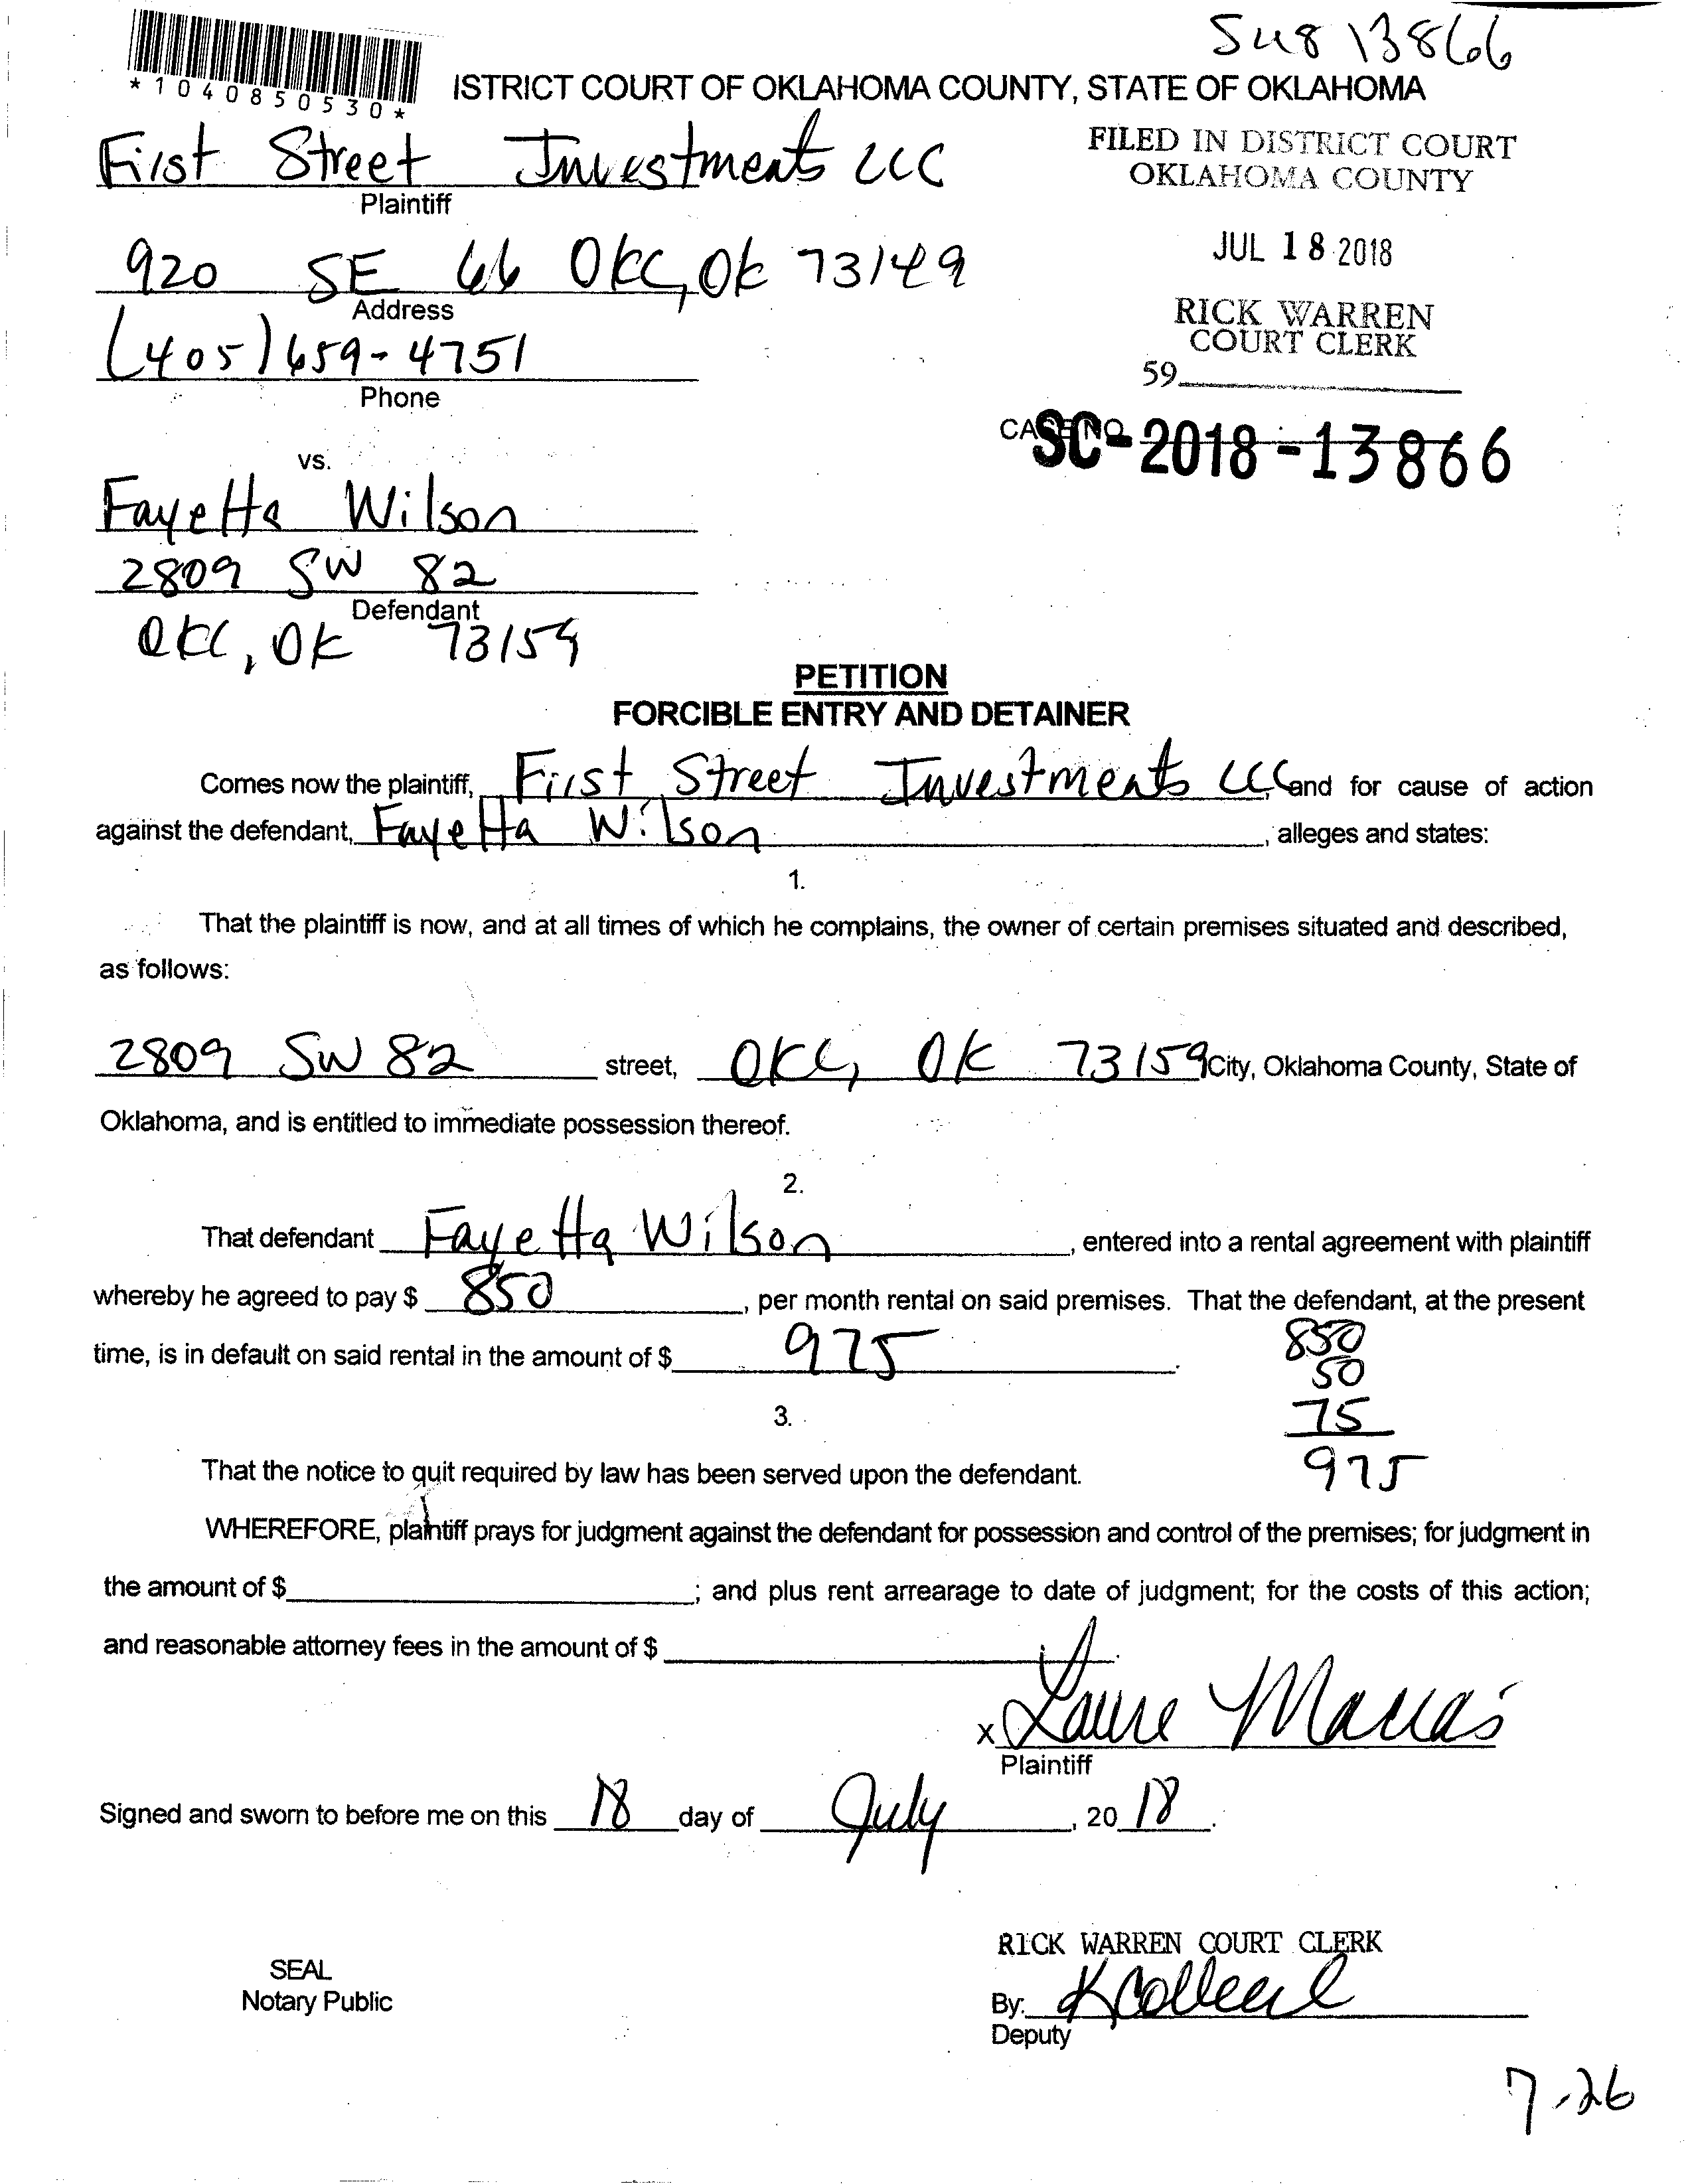 SC18 13866
*1040850530*
ISTRICT COURT OF OKLAHOMA COUNTY, STATE OF OKLAHOMA
First Street Investments LLC
Plaintiff
FILED IN DISTRICT COURT
OKLAHOMA COUNTY
920 SE 66 OKC, OK 73149
Address
JUL 18 2018
(405) 659-4751
Phone
RICK WARREN
COURT CLERK
59
CASE NO.
SC-2018-13866
vs.
Fayetta Wilson
2809 SW 82
Defendant
OKC, OK 73159
PETITION
FORCIBLE ENTRY AND DETAINER
Comes now the plaintiff, First Street Investments LLC, and for cause of action
against the defendant, Fayetta Wilson, alleges and states:
1.
That the plaintiff is now, and at all times of which he complains, the owner of certain premises situated and described,
as follows:
2809 SW 82 street, OKC, OK 73159 City, Oklahoma County, State of
Oklahoma, and is entitled to immediate possession thereof.
2.
That defendant Fayetta Wilson, entered into a rental agreement with plaintiff
whereby he agreed to pay $ 850, per month rental on said premises. That the defendant, at the present
time, is in default on said rental in the amount of $ 975.
850
50
75
975
3.
That the notice to quit required by law has been served upon the defendant.
WHEREFORE, plaintiff prays for judgment against the defendant for possession and control of the premises; for judgment in
the amount of $ ; and plus rent arrearage to date of judgment; for the costs of this action;
and reasonable attorney fees in the amount of $ .
X
Plaintiff
Signed and sworn to before me on this 18 day of July, 20 18.
SEAL
Notary Public
RICK WARREN COURT CLERK
By:
Deputy
7-26